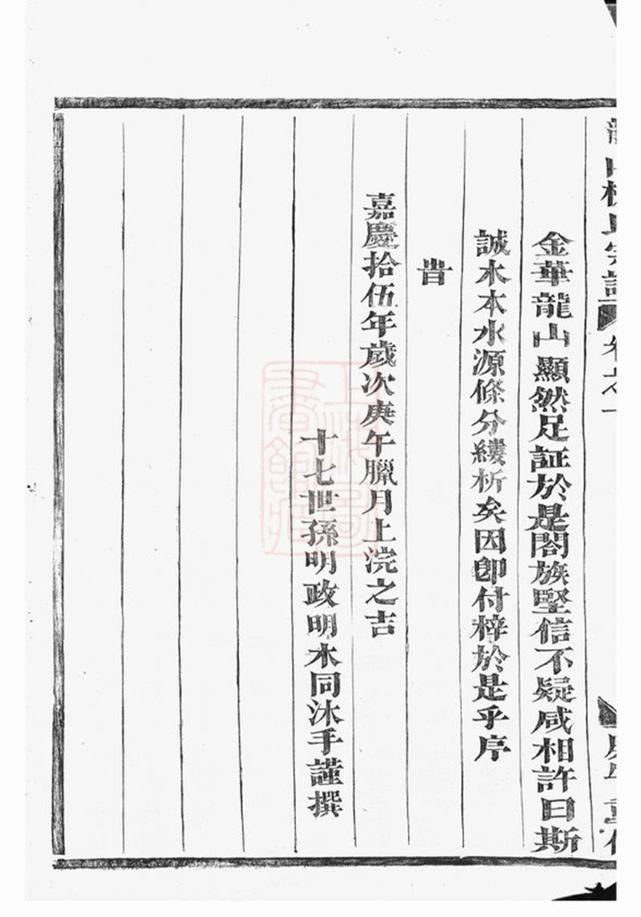 金華龍山顯然足証於是閤族堅信不疑咸相許曰斯
誠木本水源條分縷析矣因卽付梓於是乎序
旹
嘉慶拾伍年歲次庚午臘月上浣之吉
十七世孫明政明木同沐手謹撰
上海圖書館藏